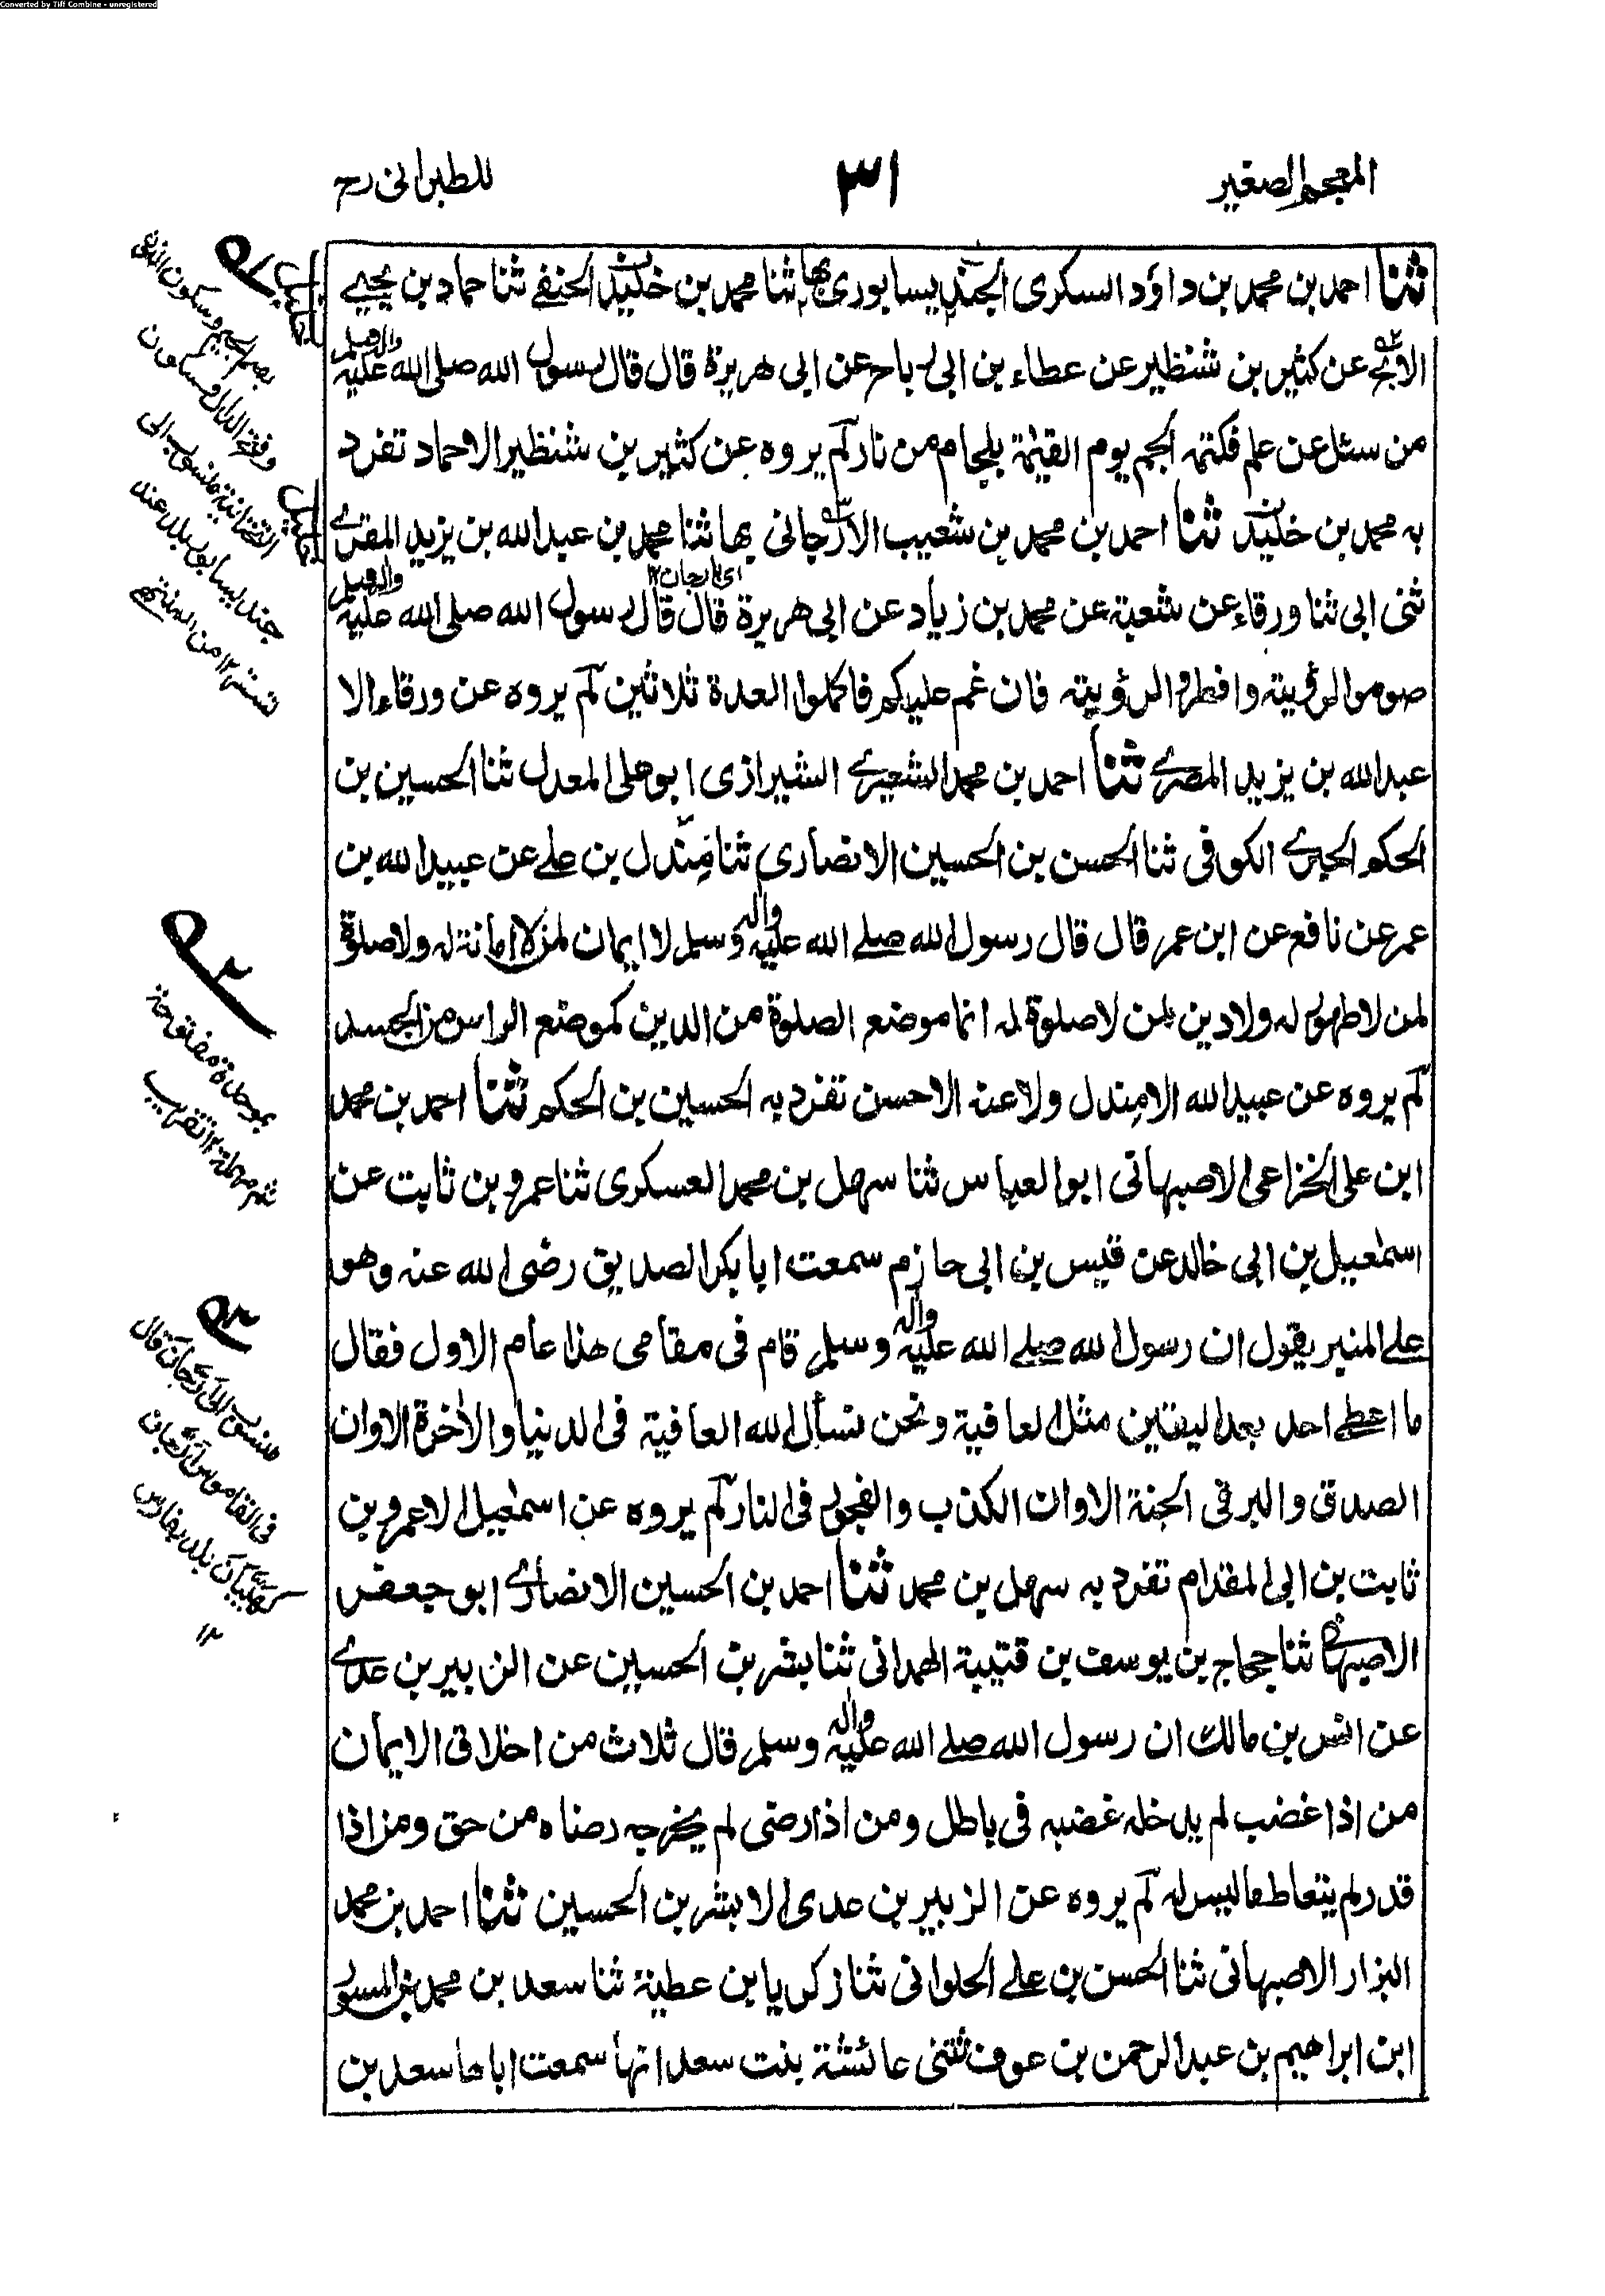 Converted by Tiff Combine - unregistered
المعجم الصغير
٣١
للطبرانی رح
ثنا احمد بن محمد بن داؤد السكری الجنديسابوری بها ثنا محمد بن خليد الحنفے ثنا حماد بن يحيے
الابح عن كثير بن شنظير عن عطاء بن ابی رباح عن ابی هريرة قال قال رسول الله صلی الله عليه واله وسلم
من سئل عن علم فكتمه الجم يوم القيٰمة بلجام من نار لم يروه عن كثير بن شنظير الا حماد تفرد
به محمد بن خليد ثنا احمد بن محمد بن شعيب الارجانی بها ثنا محمد بن عبد الله بن يزيد المقرے
ای بارجان ١٢
ثنی ابی ثنا ورقاء عن شعبة عن محمد بن زياد عن ابی هريرة قال قال رسول الله صلی الله عليه واله وسلم
صوموا لرؤيته وافطروا لرؤيته فان غم عليكم فاكملوا العدة ثلاثين لم يروه عن ورقاء الا
عبد الله بن يزيد المصرے ثنا احمد بن محمد الشعيرے الشيرازی ابو علی المعدل ثنا الحسين بن
الحكم الحبرے الكوفی ثنا الحسن بن الحسين الانصاری ثنا مندل بن علے عن عبيد الله بن
عمر عن نافع عن ابن عمر قال قال رسول الله صلے الله عليه واله وسلم لا ايمان لمن لا امانة له ولا صلوة
لمن لا طهور له ولا دين لمن لا صلوة له انما موضع الصلوة من الدين كموضع الراس من الجسد
لم يروه عن عبيد الله الا مندل ولا عنه الا حسن تفرد به الحسين بن الحكم ثنا احمد بن محمد
ابن علی الخزاعی الاصبهانی ابو العباس ثنا سهل بن محمد العسكری ثنا عمرو بن ثابت عن
اسمٰعيل بن ابی خالد عن قيس بن ابی حازم سمعت ابا بكر الصديق رضی الله عنه وهو
علے المنبر يقول ان رسول الله صلے الله عليه واله وسلم قام فی مقامی هذا عام الاول فقال
ما اعطے احد بعد اليقين مثل العافية ونحن نسأل الله العافية فی الدنيا والاٰخرة الا وان
الصدق والبر فی الجنة الا وان الكذب والفجور فی النار لم يروه عن اسمٰعيل الا عمرو بن
ثابت بن ابی المقدام تفرد به سهل بن محمد ثنا احمد بن الحسين الانصارے ابو جعفر
الاصبهانی ثنا حجاج بن يوسف بن قتيبة الهمدانی ثنا بشر بن الحسين عن الزبير بن عدے
عن انس بن مالك ان رسول الله صلے الله عليه واله وسلم قال ثلاث من اخلاق الايمان
من اذا غضب لم يدخله غضبه فی باطل ومن اذا رضی لم يخرجه رضاه من حق ومن اذا
قدر لم يتعاط ما ليس له لم يروه عن الزبير بن عدی الا بشر بن الحسين ثنا احمد بن محمد
البزار الاصبهانی ثنا الحسن بن علے الحلوانی ثنا زكريا بن عطية ثنا سعد بن محمد بن المسور
ابن ابراهيم بن عبد الرحمن بن عوف ثتنی عائشة بنت سعد انها سمعت اباها سعد بن
بضم الجيم وسكون النون
وفتح الدال وسكون
التحتانية منسوب الی
جنديسابور بلد عند
تستر ١٢ من
بموحدة مفتوحة
ثم مهملة ١٢ تقريب
منسوب الی ارجان قال
فی القاموس ارجان
بلد بفارس
١٢